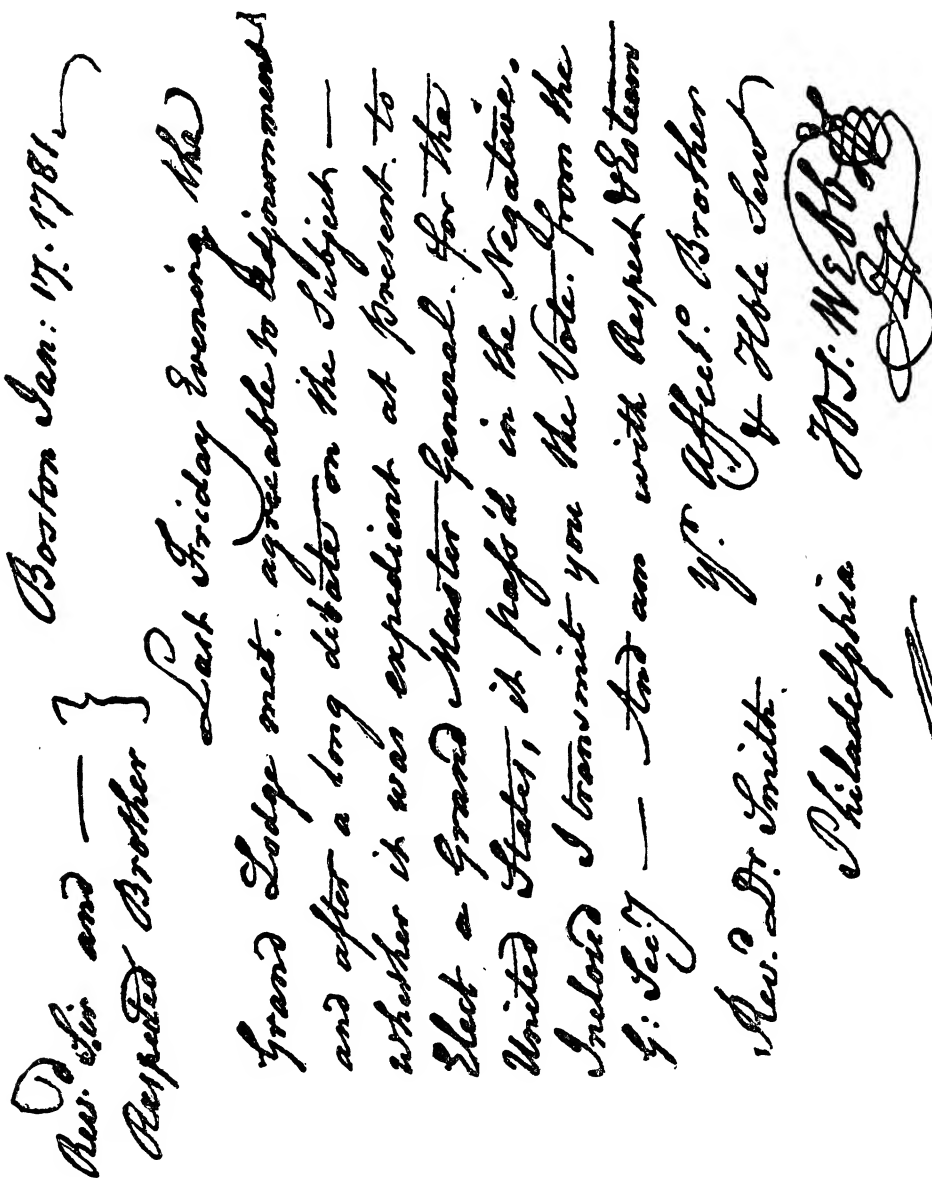 Boston Jan: 17. 1781.
Revd. Sir and —
Respected Brother }
Last Friday Evening the
Grand Lodge met. agreable to Adjournment
and after a long debate on the Subject —
whether it was expedient at present to
Elect a Grand Master General. for the
United States, it pass'd in the Negative.
Inclosd I transmit you the Vote. from the
G: Secy — And am with Respect & Esteem
Yr Affect. Brother
& Hble Servt
Revd. Dr. Smith.
Philadelphia
Js. Webb